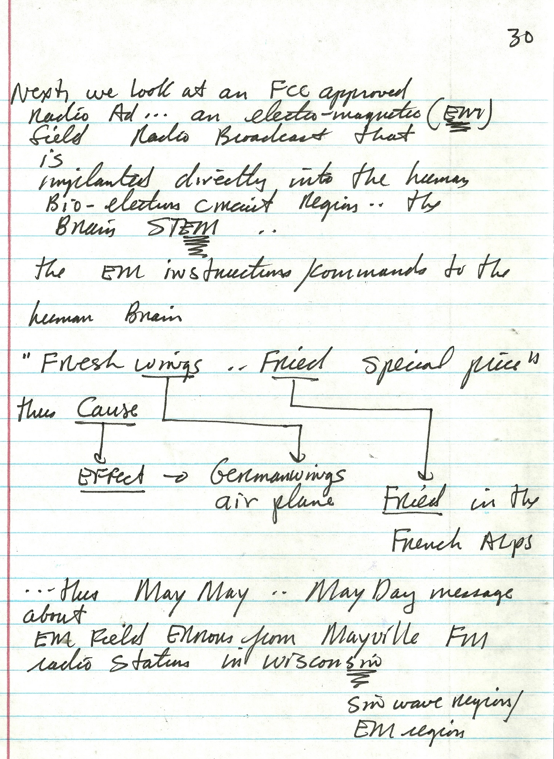 30
Next, we look at an FCC approved
Radio Ad... an electro-magnetic (EM)
field Radio Broadcast that
is
implanted directly into the human
Bio-electric circuit Region.. the
Brain STEM ..
the EM instructions/commands to the
human Brain
"Fresh wings .. Fried special price"
thus Cause
Effect → Germanwings
air plane Fried in the
French Alps
...thus May May .. May Day message
about
EM Field Errors from Mayville FM
radio station in wisconsin
sin wave region/
EM region